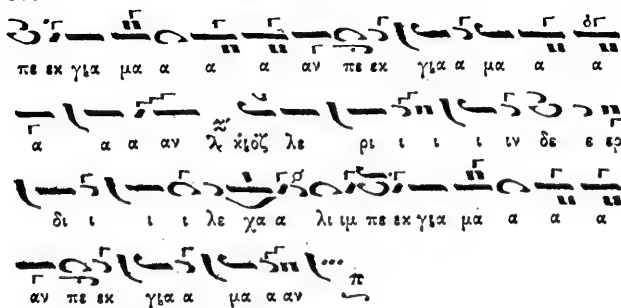 πε εκ για μα α α α αν πε εκ για α μα α α
α α α αν λ κιοζ λε ρι ι ι ι ιν δε ε ερ
δι ι ι ι λε χα α λι ιμ πε εκ για μα α α α
αν πε εκ για α μα α αν π